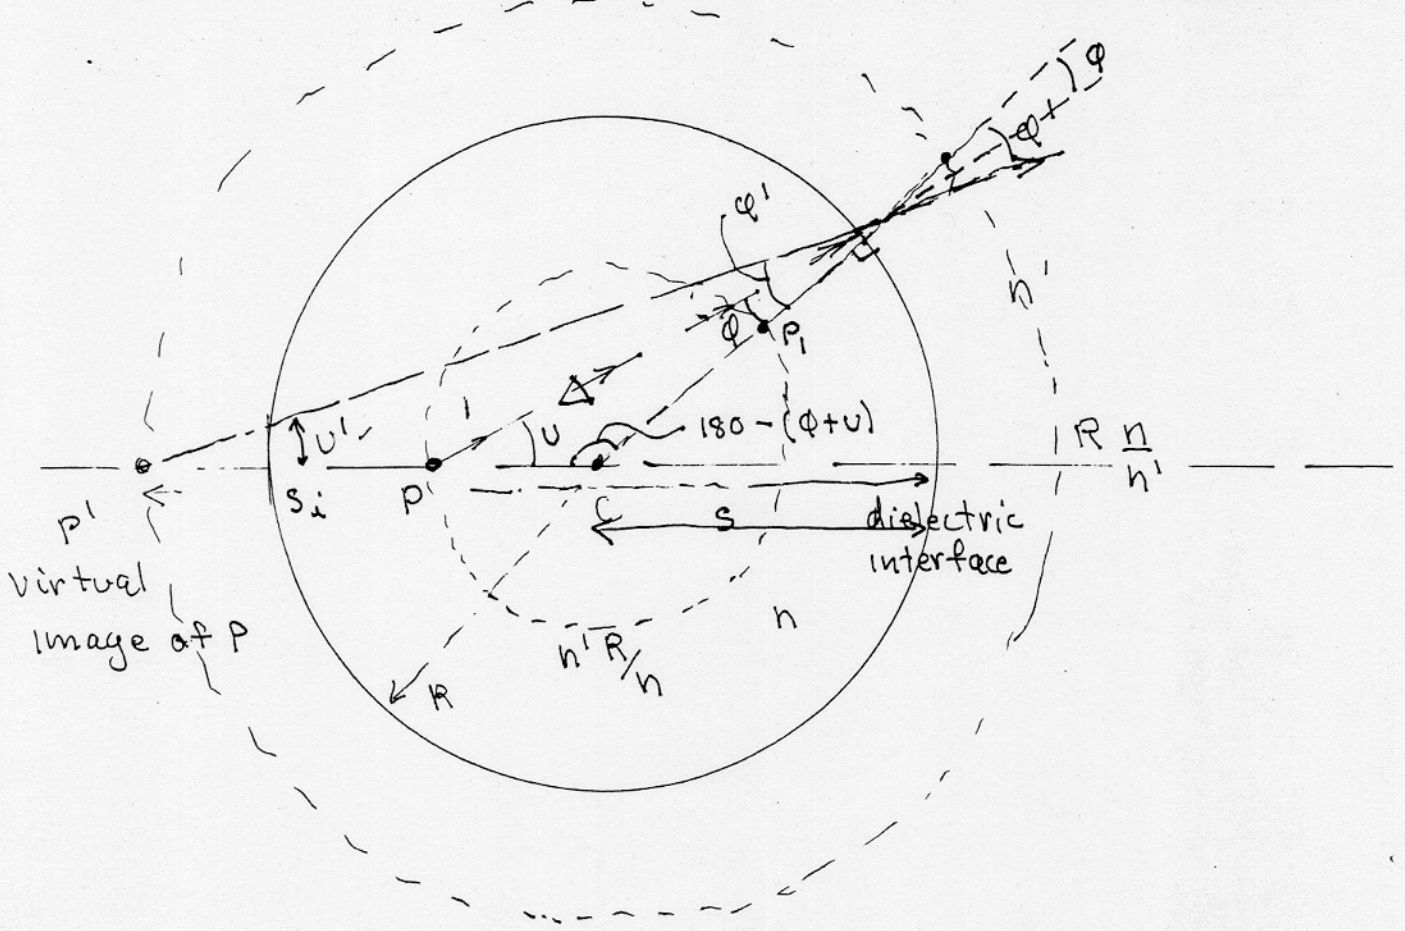 φ
φ'
φ'
n'
φ
P₁
Δ
U'
U
180 - (φ+U)
R n/n'
P'
Sᵢ
P
C
S
dielectric
interface
virtual
image of P
n'R/n
n
R